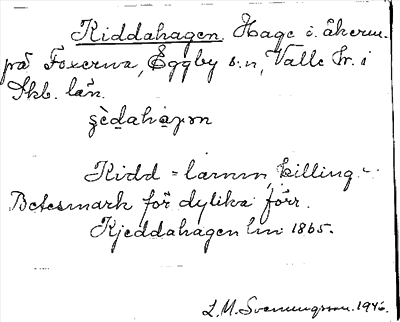 Kiddahagen. Hage i åkern.
på Foxerna, Eggby s:n, Valle hr. i
Skb. län.
ʂèdahàgən
Kidd = lamm, killing.
Betesmark för dylika förr.
Kjeddahagen Lm 1865.
L.M. Svenungsson. 1946.